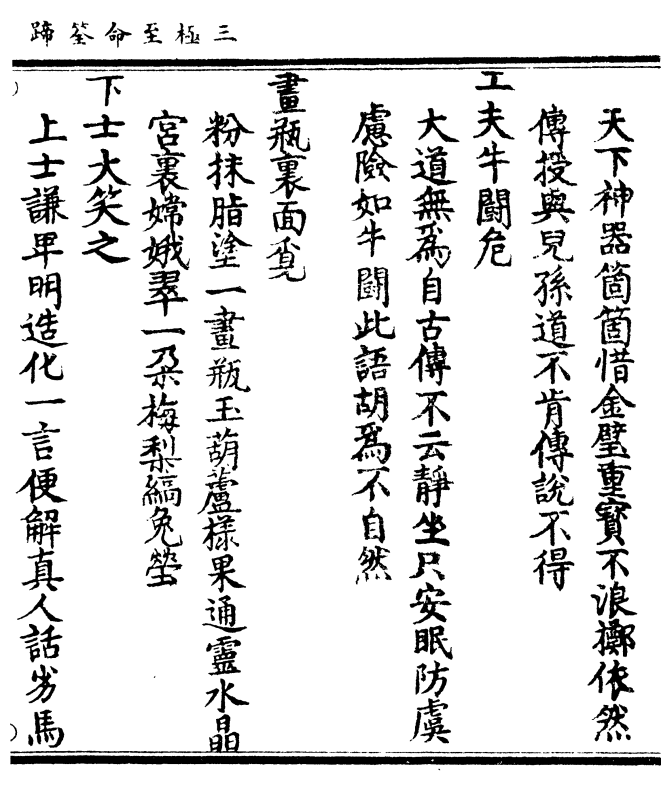 三極至命筌蹄
天下神器箇箇惜金璧重寳不浪擲依然
傳授與兒孫道不肯傳說不得
工夫牛鬪危
大道無爲自古傳不云靜坐只安眠防虞
慮險如牛鬪此語胡爲不自然
畫瓶裏面覔
粉抹脂塗一畫瓶玉葫蘆樣果通靈水晶
宮裏嫦娥翠一朵梅梨縞兔瑩
下士大笑之
上士謙卑明造化一言便解真人話劣馬